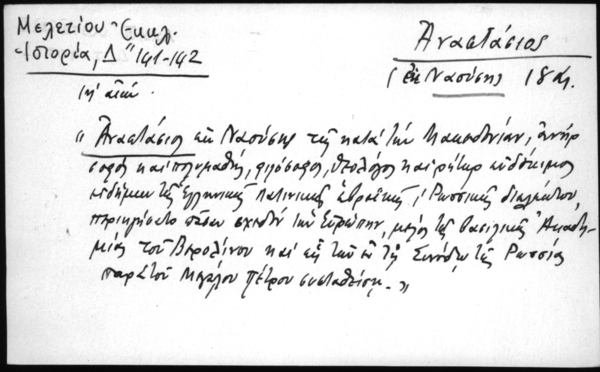 Μελετίου "Εκκλ.
Ἱστορία, Δ" 141-142
ιη΄ αἰών.
Ἀναστάσιος
(ἐκ Ναούσης) 18 αι.
"Ἀναστάσιος ἐκ Ναούσης τῆς κατά την Μακεδονίαν, ἀνήρ
σοφός και πολυμαθής, φιλόσοφος, θεολόγος και ρήτωρ εὐδόκιμος
εἰδήμων τῆς Ἑλληνικῆς Λατινικῆς ἑβραϊκῆς Ρωσσικῆς διαλέκτου,
περιηγήσατο πᾶσαν σχεδόν την Εὐρώπην, μέλος τῆς βασιλικῆς Ἀκαδη-
μίας τοῦ Βερολίνου και εἷς των ἐν τῇ Συνόδῳ τῆς Ρωσσίας
παρά τοῦ Μεγάλου Πέτρου συσταθείσῃ."